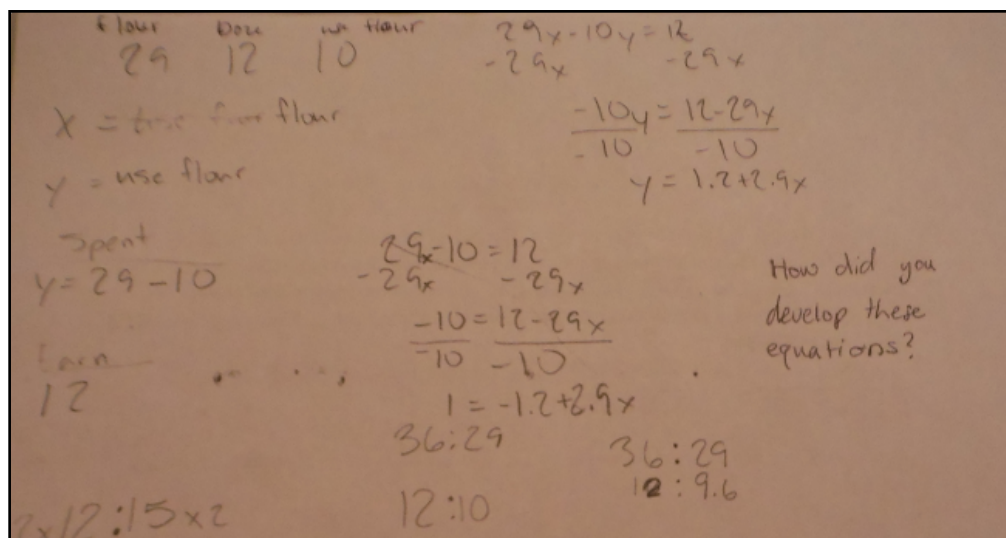 flour
29 12 10
flour
y = use flour
Spent
y = 29 - 10
Earn
12
2x12:15x2
29x - 10y = 12
-29x -29x
-10y = 12-29x
-10 -10
y = 1.2+2.9x
29x-10 = 12
-29x -29x
-10 = 12-29x
-10 -10
1 = -1.2+2.9x
36:29
12:10
36:29
12:9.6
How did you
develop these
equations?